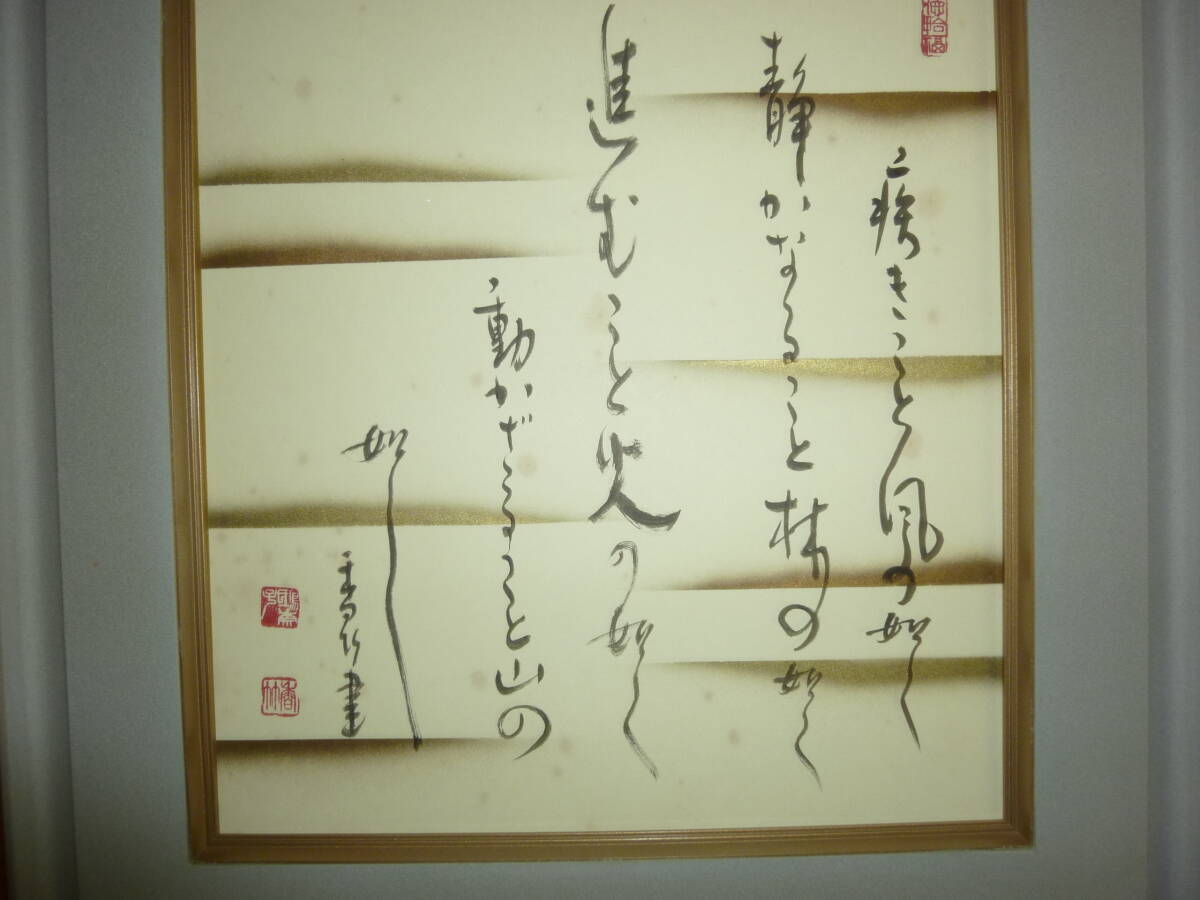 疾きこと風の如く
静かなること林の如く
進むこと火の如く
動かざること山の
如し
香竹書
香竹